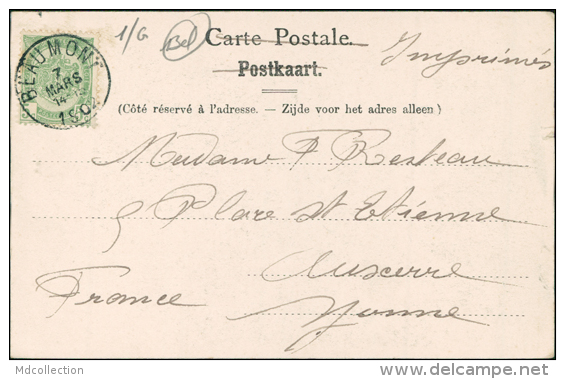 1/G Bel
Carte Postale.
Imprimés
Postkaart.
(Côté réservé à l'adresse. — Zijde voor het adres alleen)
BEAUMONT
7
MARS
14
190
Madame F Resteau
9 Place St Etienne
Auxerre
France
Yonne
Mdcollection
www.delcampe.net